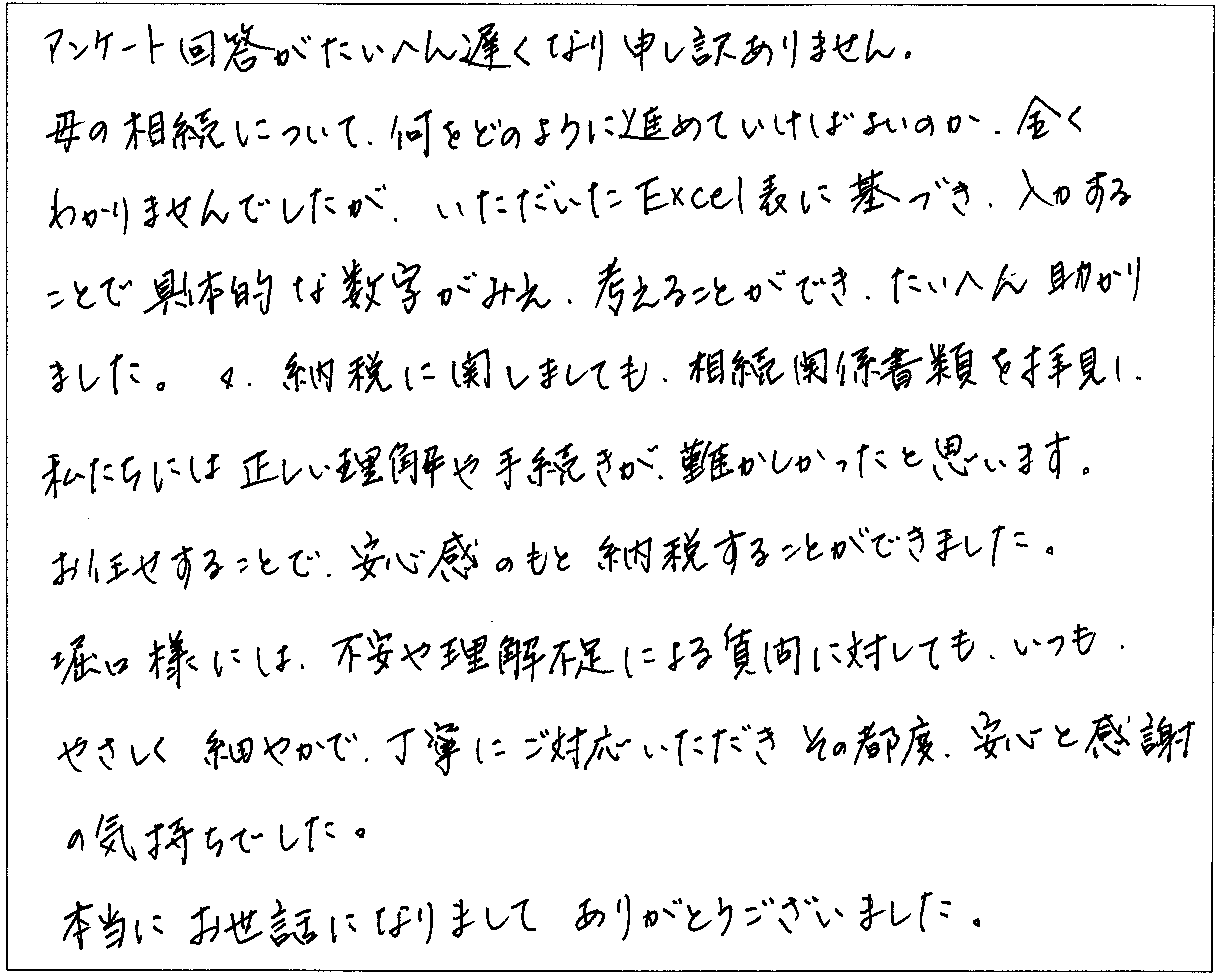 アンケート回答がたいへん遅くなり申し訳ありません。
母の相続について、何をどのように進めていけばよいのか、全く
わかりませんでしたが、いただいたExcel表に基づき、入力する
ことで具体的な数字がみえ、考えることができ、たいへん助かり
ました。 又、納税に関しましても、相続関係書類を拝見し、
私たちには正しい理解や手続きが、難かしかったと思います。
お任せすることで、安心感のもと納税することができました。
堀口様には、不安や理解不足による質問に対しても、いつも、
やさしく細やかで、丁寧にご対応いただきその都度、安心と感謝
の気持ちでした。
本当にお世話になりまして ありがとうございました。